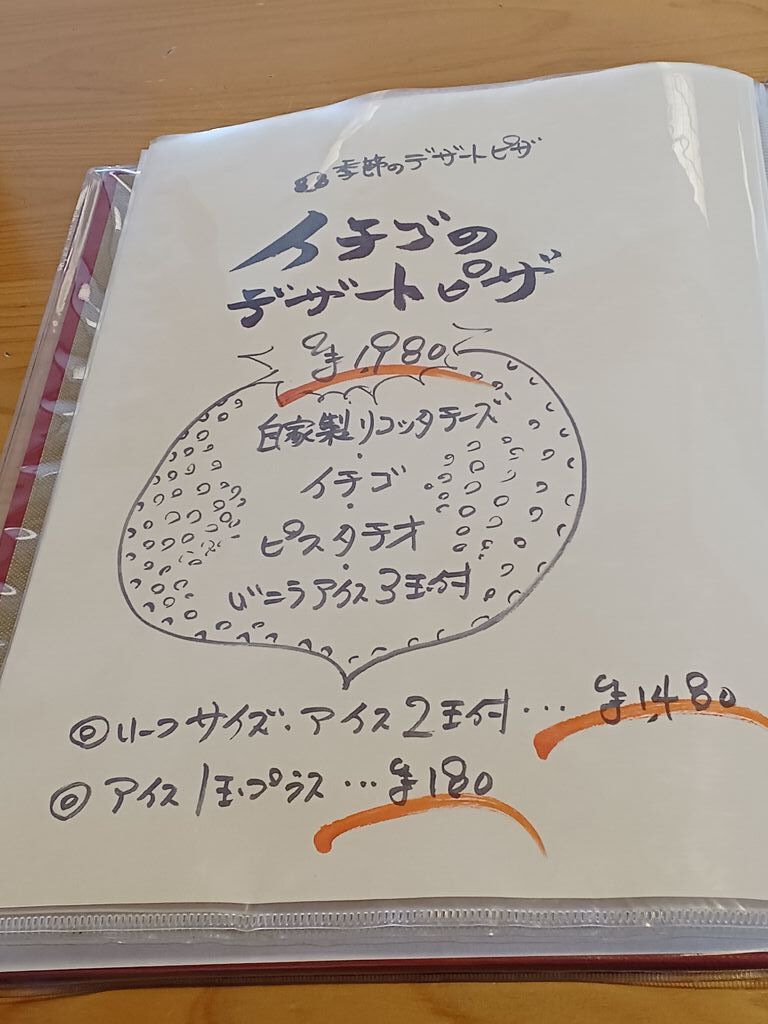 季節のデザートピザ
イチゴの
デザートピザ
¥1,980
自家製リコッタチーズ
・
イチゴ
・
ピスタチオ
・
バニラアイス3玉付
◎ハーフサイズ・アイス2玉付…¥1,480
◎アイス1玉プラス…¥180